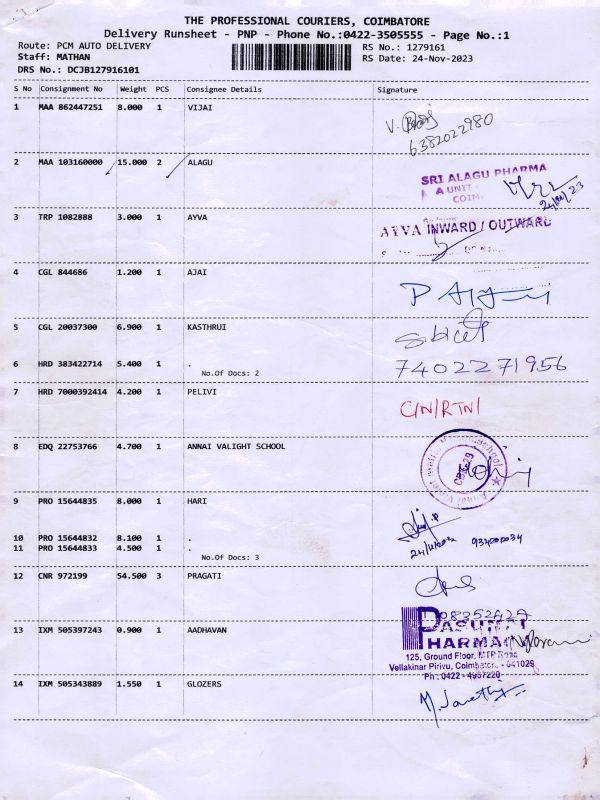 THE PROFESSIONAL COURIERS, COIMBATORE
Delivery Runsheet - PNP - Phone No.:0422-3505555 - Page No.:1
Route: PCM AUTO DELIVERY
RS No.: 1279161
Staff: MATHAN
RS Date: 24-Nov-2023
DRS No.: DCJB127916101
S No Consignment No Weight PCS Consignee Details Signature
1 MAA 862447251 8.000 1 VIJAI
V.
6382022980
2 MAA 103160000 15.000 2 ALAGU
SRI ALAGU PHARMA
A UNIT
COIM
3 TRP 1082888 3.000 1 AYVA
AYVA INWARD / OUTWARD
4 CGL 844686 1.200 1 AJAI
5 CGL 20037300 6.900 1 KASTHRUI
6 HRD 383422714 5.400 1 .
No.Of Docs: 2
7402271956
7 HRD 7000392414 4.200 1 PELIVI
C/N/RTN/
8 EDQ 22753766 4.700 1 ANNAI VALIGHT SCHOOL
9 PRO 15644835 8.000 1 HARI
10 PRO 15644832 8.100 1 .
11 PRO 15644833 4.500 1 .
No.Of Docs: 3
12 CNR 972199 54.500 3 PRAGATI
13 IXM 505397243 0.900 1 AADHAVAN
PHARMA
125, Ground Floor, MTP Road
Vellakinar Pirivu, Coimbatore - 641029
Ph : 0422 - 4957220
14 IXM 505343889 1.550 1 GLOZERS